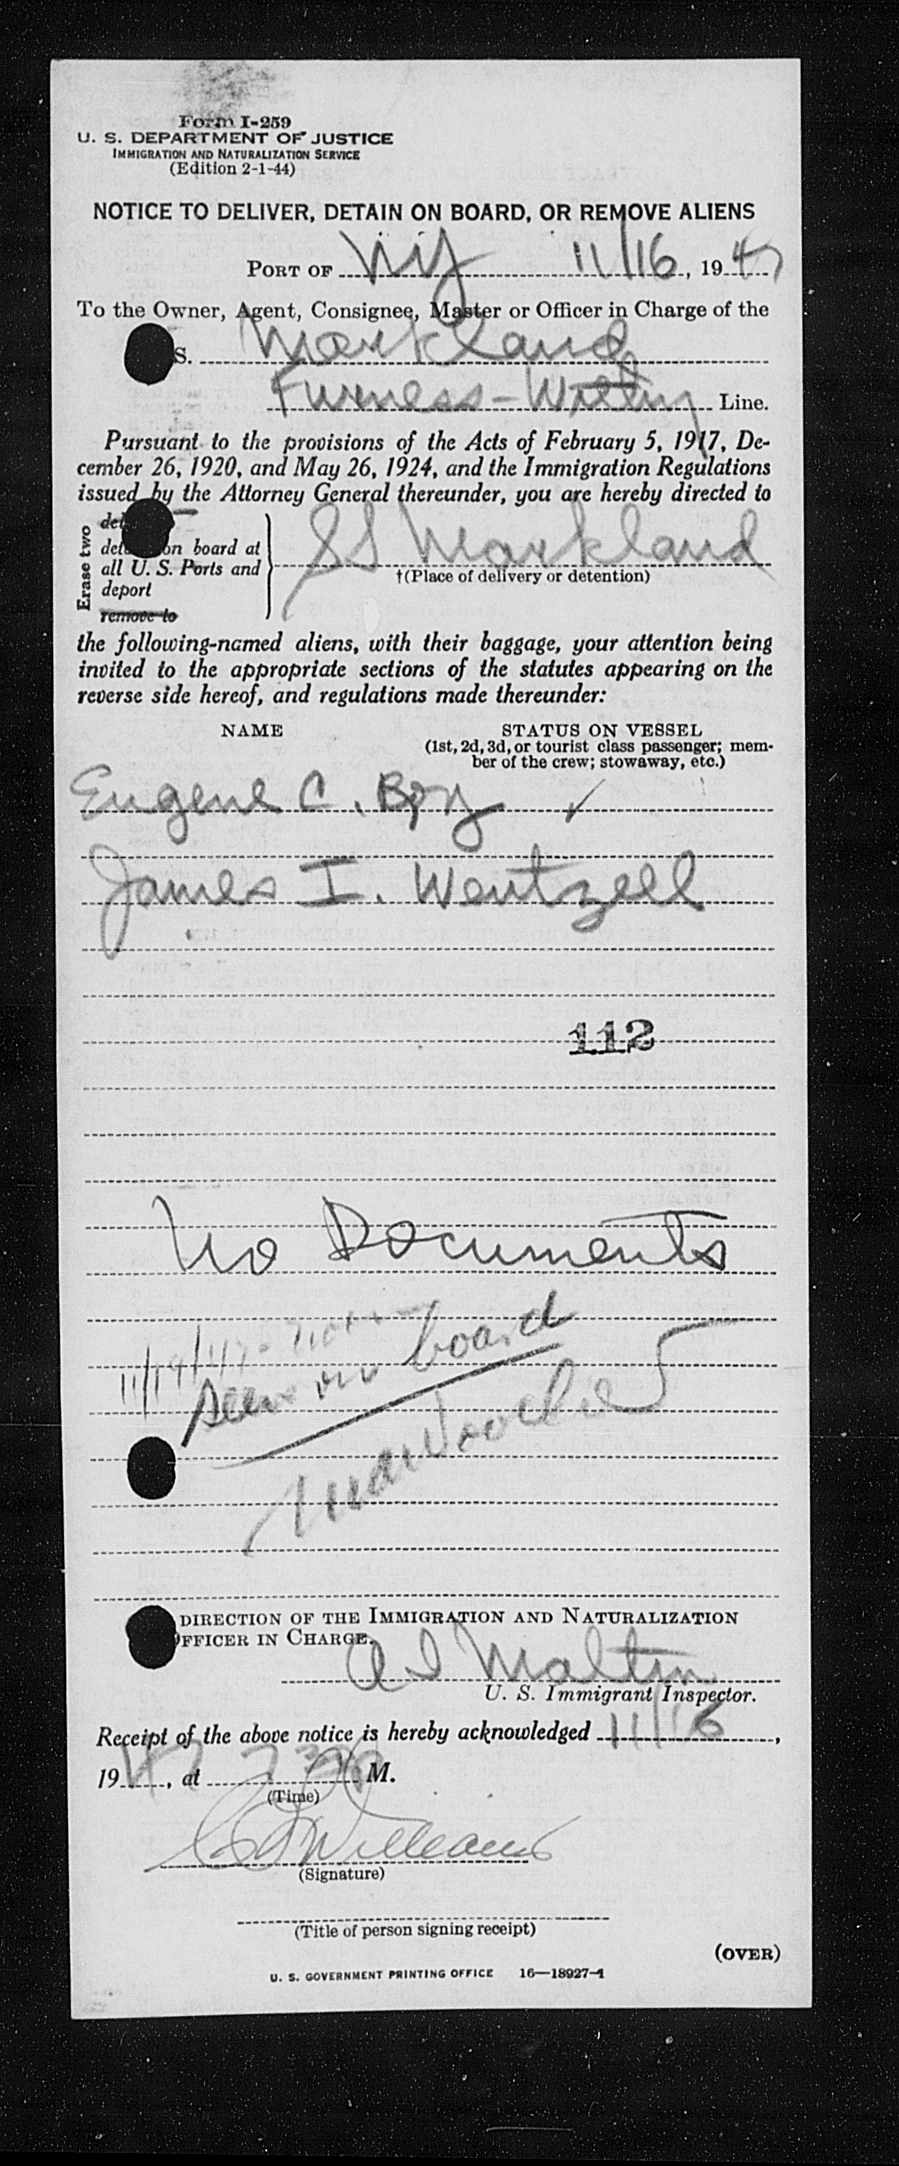 Form I-259
U. S. DEPARTMENT OF JUSTICE
IMMIGRATION AND NATURALIZATION SERVICE
(Edition 2-1-44)
NOTICE TO DELIVER, DETAIN ON BOARD, OR REMOVE ALIENS
PORT OF NY 11/16, 1947
To the Owner, Agent, Consignee, Master or Officer in Charge of the
S. Markland
Furness-Withy Line.
Pursuant to the provisions of the Acts of February 5, 1917, De-
cember 26, 1920, and May 26, 1924, and the Immigration Regulations
issued by the Attorney General thereunder, you are hereby directed to
Erase two
on board at
all U. S. Ports and
deport
remove to
SS Markland
†(Place of delivery or detention)
the following-named aliens, with their baggage, your attention being
invited to the appropriate sections of the statutes appearing on the
reverse side hereof, and regulations made thereunder:
NAME STATUS ON VESSEL
(1st, 2d, 3d, or tourist class passenger; mem-
ber of the crew; stowaway, etc.)
Eugene C. ✓
James I. Wentzell
112
No Documents
11/19/47-
seen on board
DIRECTION OF THE IMMIGRATION AND NATURALIZATION
OFFICER IN CHARGE.
U. S. Immigrant Inspector.
Receipt of the above notice is hereby acknowledged 11/16,
1947, at M.
(Time)
Williams
(Signature)
(Title of person signing receipt)
(OVER)
U. S. GOVERNMENT PRINTING OFFICE 16—18927-1